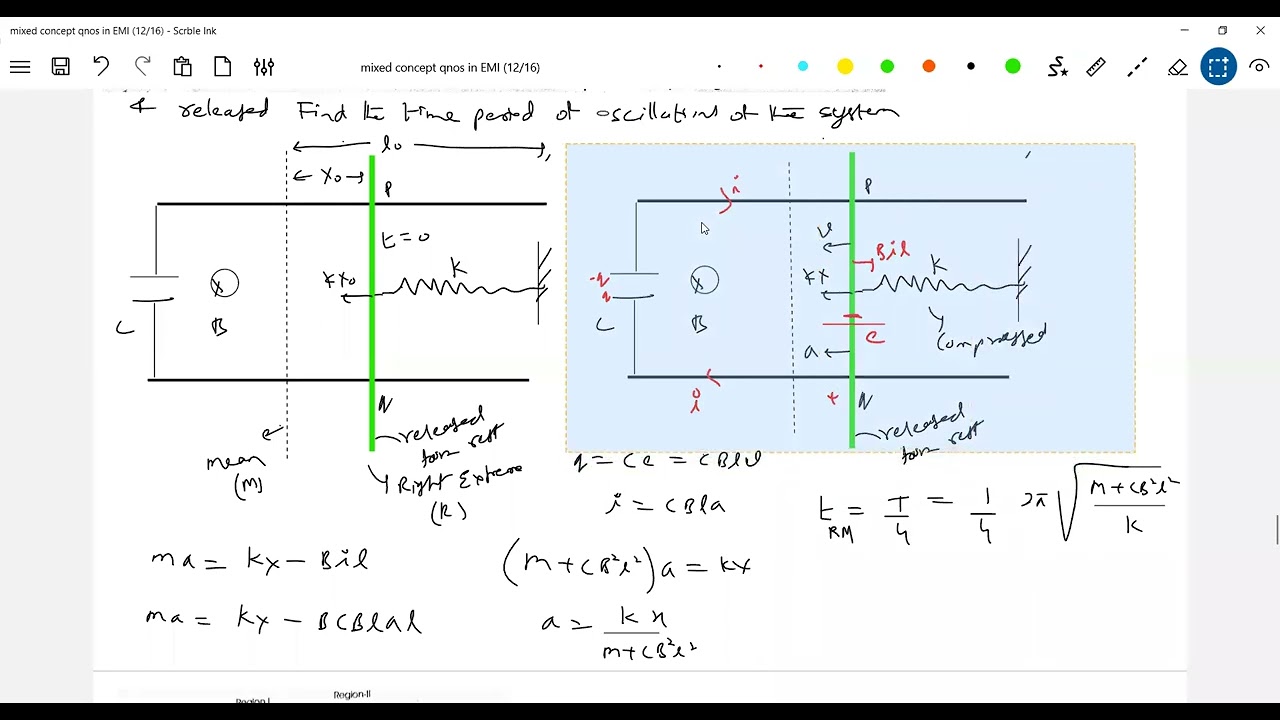 mixed concept qnos in EMI (12/16) - Scrble Ink
mixed concept qnos in EMI (12/16)
& released Find the time period of oscillations of the system
l₀
x₀
P
t=0
K
kx₀
C
B
N
released from rest
mean (M)
Right Extreme (R)
i
P
v
Bil
K
kx
-q
q
C
B
e
compressed
a
i
+
N
released from rest
q = Ce = CBlv
i = CBla
t_RM = T/4 = 1/4 2π √((m+CB²l²)/k)
ma = kx - Bil
(m+CB²l²)a = kx
ma = kx - BCBlal
a = kx/(m+CB²l²)
Region-I
Region-II